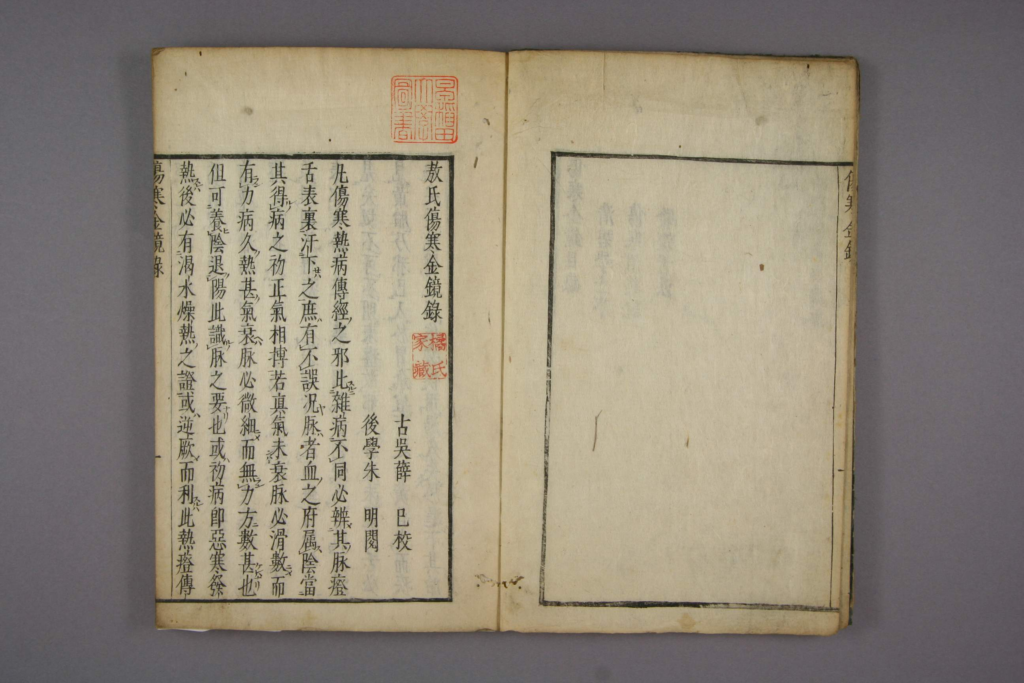 傷寒金鏡錄
敖氏傷寒金鏡錄
古吳薛 已校
後學朱 明閱
凡傷寒熱病傳經之邪比雜病不同必辨其脉證
舌表裏汗下之庶有不誤况脉者血之府属陰當
其得病之初正氣相搏若真氣未衰脉必滑數而
有力病久熱甚氣衰脉必微細而無力方數甚也
但可養陰退陽此識脉之要也或初病即惡寒發
熱後必有渴水燥熱之證或逆厥而利此熱證傳
傷寒金鏡錄
橘氏家藏